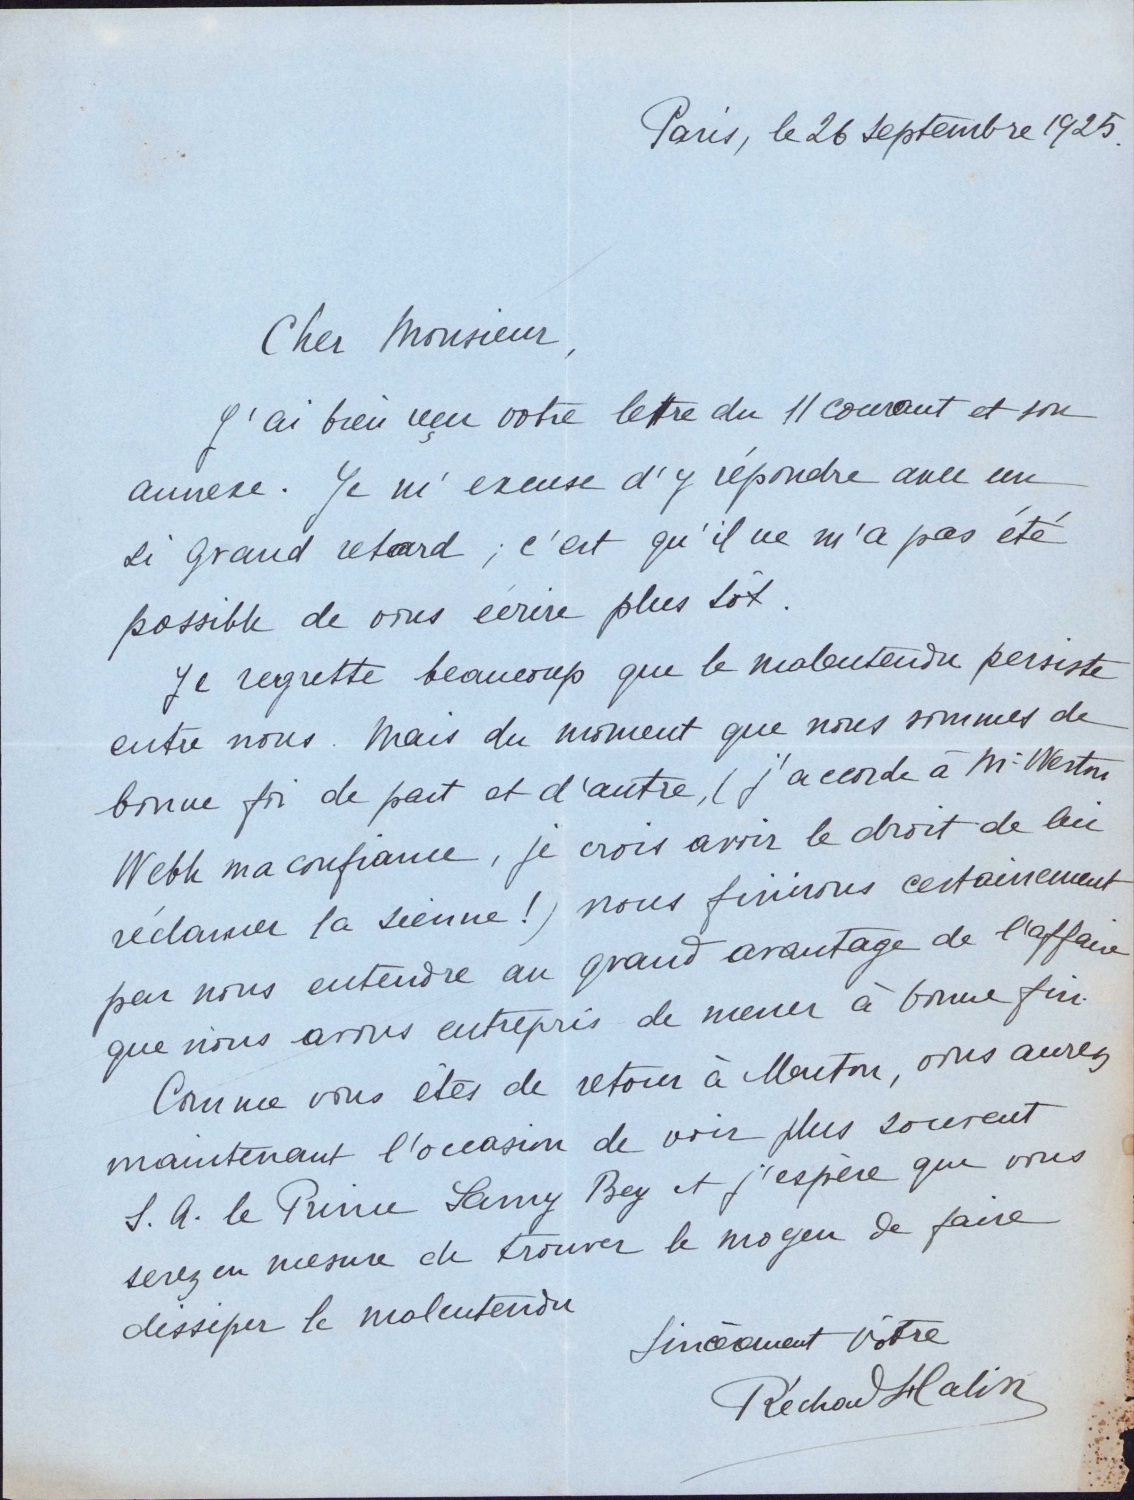 Paris, le 26 Septembre 1925.
Cher Monsieur,
J'ai bien reçu votre lettre du 11 courant et son
annexe. Je m'excuse d'y répondre avec un
si grand retard ; c'est qu'il ne m'a pas été
possible de vous écrire plus tôt.
Je regrette beaucoup que le malentendu persiste
entre nous. Mais du moment que nous sommes de
bonne foi de part et d'autre, (j'accorde à Mr Weston
Webb ma confiance, je crois avoir le droit de lui
réclamer la sienne!) nous finirons certainement
par nous entendre au grand avantage de l'affaire
que nous avons entrepris de mener à bonne fin.
Comme vous êtes de retour à Menton, vous aurez
maintenant l'occasion de voir plus souvent
S. A. le Prince Samy Bey et j'espère que vous
serez en mesure de trouver le moyen de faire
dissiper le malentendu
Sincèrement vôtre
Réchad Halis